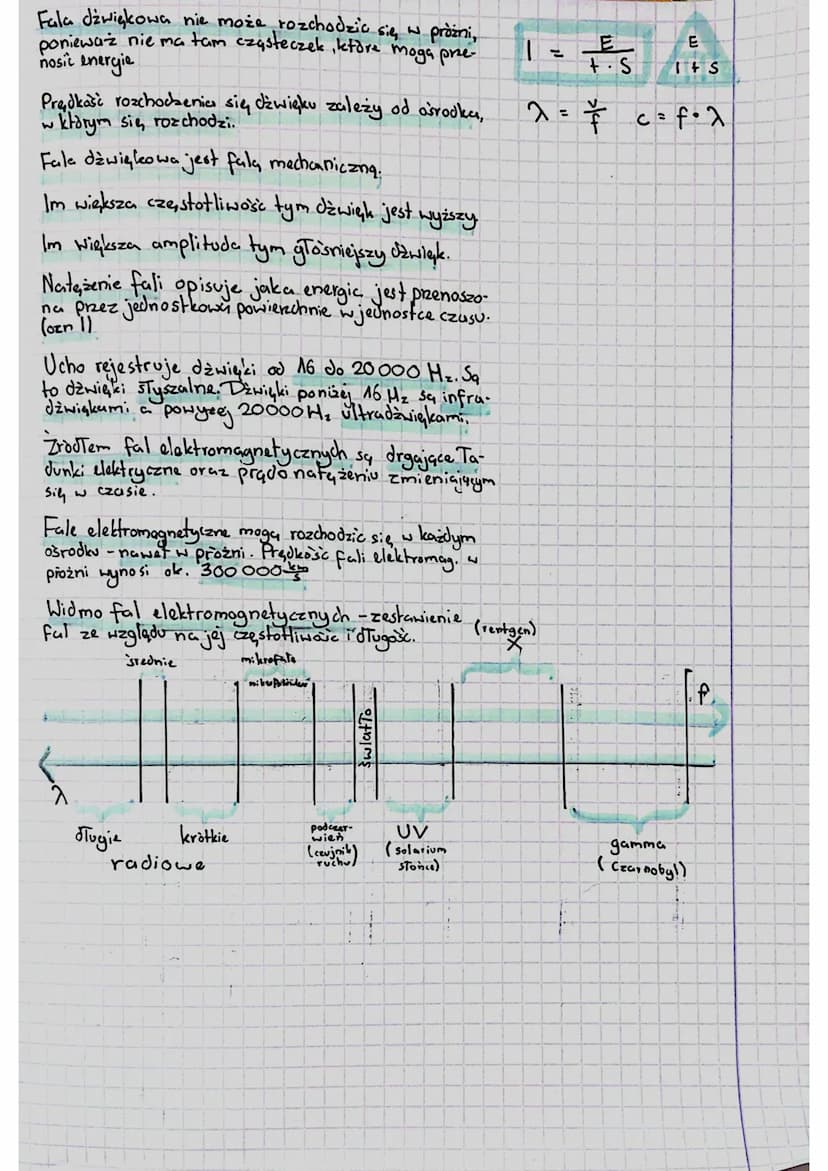 Fala dźwiękowa nie może rozchodzić się w próżni,
ponieważ nie ma tam cząsteczek, które mogą prze-
nosić energię
Prędkość rozchodzenia się dźwięku zależy od ośrodka,
w którym się rozchodzi.
Fala dźwiękowa jest falą mechaniczną.
Im większa częstotliwość tym dźwięk jest wyższy
Im większa amplituda tym głośniejszy dźwięk.
Natężenie fali opisuje jaka energia jest przenoszo-
na przez jednostkową powierzchnie w jednostce czasu.
(ozn I)
Ucho rejestruje dźwięki od 16 do 20 000 Hz. Są
to dźwięki słyszalne. Dźwięki poniżej 16 Hz są infra-
dźwiękami a powyżej 20000 Hz ultradźwiękami.
Źródłem fal elektromagnetycznych są drgające ła-
dunki elektryczne oraz prąd o natężeniu zmieniającym
się w czasie.
Fale elektromagnetyczne mogą rozchodzić się w każdym
ośrodku - nawet w próżni. Prędkość fali elektromag. w
próżni wynosi ok. 300 000 km/s
Widmo fal elektromagnetycznych - zestawienie
fal ze względu na jej częstotliwość i długość.
I = E / t · S
E
I t S
λ = v/f c = f · λ
(rentgen)
X
średnie
mikrofale
f
światło
λ
długie
krótkie
radiowe
podczer-
wień
(czujnik
ruchu)
UV
(solarium
słońce)
gamma
(Czarnobyl)